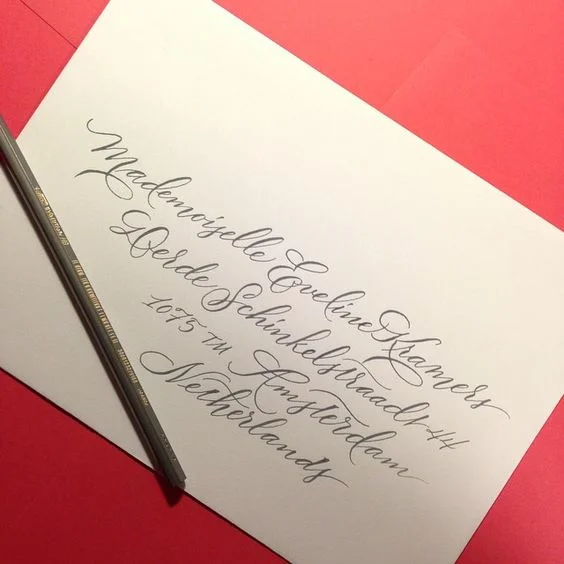 Mademoiselle Eveline Kramers
Gerde Schinkelstraadt 44
1075 TM Amsterdam
Netherlands